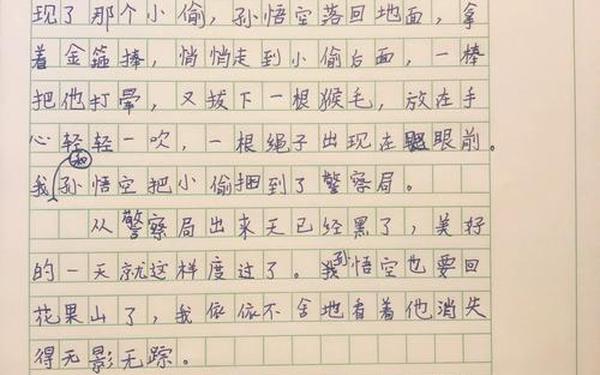 现了那个小偷，孙悟空落回地面，拿
着金箍捧，悄悄走到小偷后面，一棒
把他打晕，又拔下一根猴毛，放在手
心轻轻一吹，一根绳子出现在眼前。
我和孙悟空把小偷捆到了警察局。
从警察局出来天已经黑了，美好
的一天就这样度过了。孙悟空也要回
花果山了，我依依不舍地看着他消失
得无影无踪。